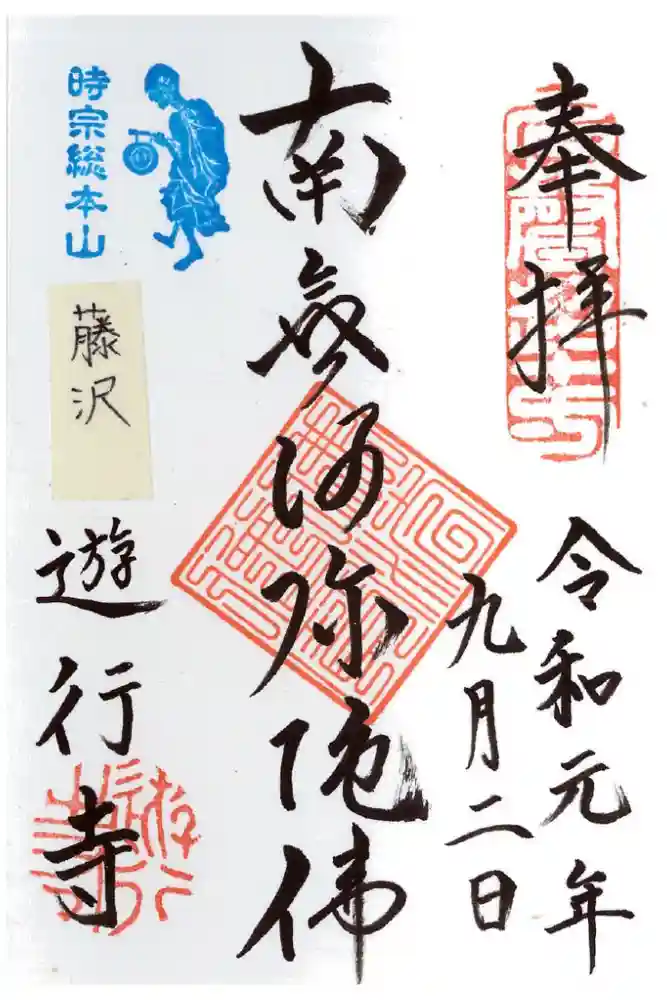 奉拝
令和元年
九月二日
南無阿弥陀佛
時宗総本山
藤沢
遊行寺